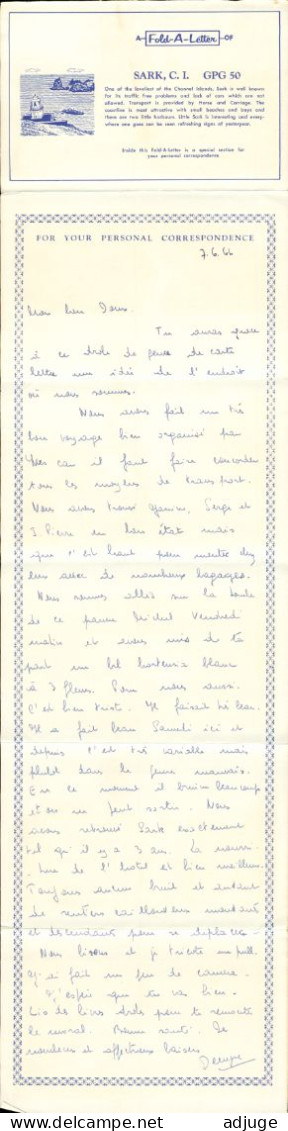 A Fold-A-Letter OF
SARK, C. I. GPG 50
One of the loveliest of the Channel Islands, Sark is well known
for its traffic free problems and lack of cars which are not
allowed. Transport is provided by Horse and Carriage. The
coastline is most attractive with small beaches and bays and
there are two little harbours. Little Sark is interesting and every-
where one goes can be seen refreshing signs of yesteryear.
Inside this Fold-A-Letter is a special section for
your personal correspondence
FOR YOUR PERSONAL CORRESPONDENCE
7.6.66
Mon bien
Tu auras grâce
à ce drôle de genre de carte
lettre une idée de l'endroit
où nous sommes.
Nous avons fait un très
bon voyage bien organisé par
car il faut faire concorder
tous les moyens de transport.
Nous avons trouvé Serge et
J. Pierre en bon état mais
que c'est haut pour monter chez
eux avec de nombreux bagages.
Nous sommes allés sur la tombe
de ce pauvre Vendredi
matin et avons mis de ta
part un bel hortensia blanc
à 3 fleurs. Pour nous aussi.
C'est bien triste. Il faisait très beau.
Il a fait beau Samedi ici et
depuis c'est très variable mais
plutôt dans le genre mauvais.
En ce moment il bruine beaucoup
et on ne peut sortir. Nous
avons retrouvé Sark exactement
tel qu'il y a 3 ans. La nourri-
ture de l'hôtel est bien meilleure.
Toujours aucun bruit et
de sentiers caillouteux montants
et descendants pour se déplacer.
Nous lisons et je tricote un pull.
J'ai fait un peu de
J'espère que tu vas bien.
Lis des livres drôles pour te remonter
le moral. Bonne santé. De
nombreux et affectueux baisers